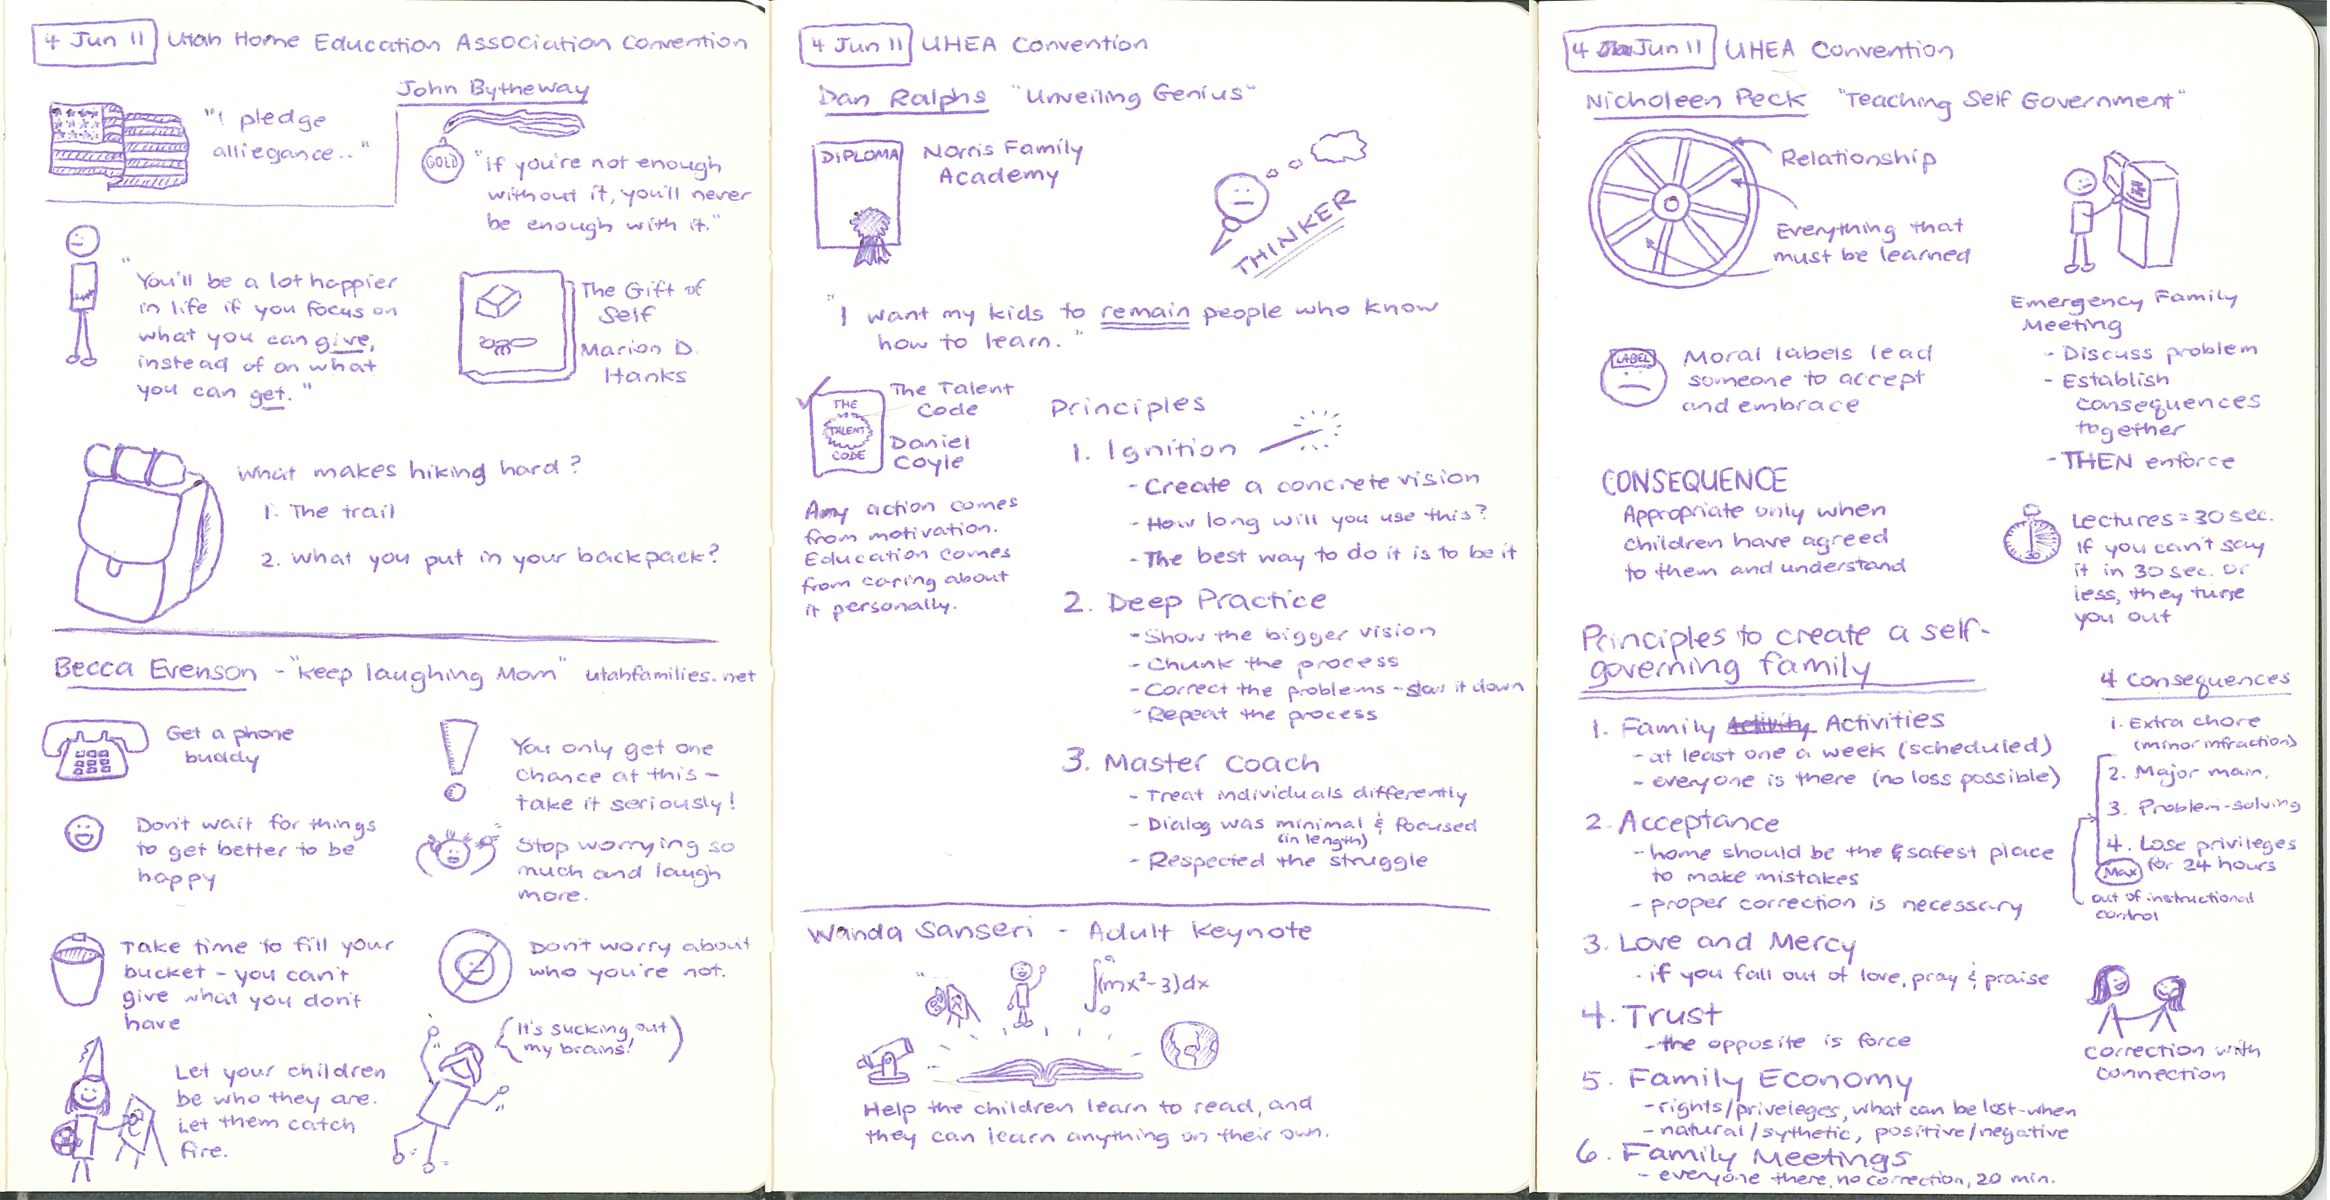 4 Jun 11 Utah Home Education Association Convention
"I pledge
alliegance.."
John Bytheway
GOLD
"if you're not enough
without it, you'll never
be enough with it."
"You'll be a lot happier
in life if you focus on
what you can give,
instead of on what
you can get."
The Gift of
Self
Marion D.
Hanks
What makes hiking hard?
1. The trail
2. What you put in your backpack?
Becca Evenson - "Keep laughing Mom" utahfamilies.net
Get a phone
buddy
You only get one
chance at this -
take it seriously!
Don't wait for things
to get better to be
happy
Stop worrying so
much and laugh
more.
Take time to fill your
bucket - you can't
give what you don't
have
Don't worry about
who you're not.
(It's sucking out
my brains!)
Let your children
be who they are.
Let them catch
fire.
4 Jun 11 UHEA Convention
Dan Ralphs "Unveiling Genius"
DIPLOMA
Norris Family
Academy
THINKER
"I want my kids to remain people who know
how to learn."
THE
TALENT
CODE
The Talent
Code
Daniel
Coyle
Any action comes
from motivation.
Education comes
from caring about
it personally.
Principles
1. Ignition
- Create a concrete vision
- How long will you use this?
- The best way to do it is to be it
2. Deep Practice
- Show the bigger vision
- Chunk the process
- Correct the problems - slow it down
- Repeat the process
3. Master Coach
- Treat individuals differently
- Dialog was minimal & focused
(in length)
- Respected the struggle
Wanda Sanseri - Adult Keynote
∫(mx²-3)dx
Help the children learn to read, and
they can learn anything on their own.
4 Jun 11 UHEA Convention
Nicholeen Peck "Teaching Self Government"
Relationship
Everything that
must be learned
Emergency Family
Meeting
- Discuss problem
- Establish
consequences
together
- THEN enforce
LABEL
Moral labels lead
someone to accept
and embrace
CONSEQUENCE
Appropriate only when
children have agreed
to them and understand
Lectures = 30 sec.
If you can't say
it in 30 sec. or
less, they tune
you out
Principles to create a self-
governing family
1. Family Activity Activities
- at least one a week (scheduled)
- everyone is there (no loss possible)
2. Acceptance
- home should be the safest place
to make mistakes
- proper correction is necessary
3. Love and Mercy
- if you fall out of love, pray & praise
4. Trust
- the opposite is force
5. Family Economy
- rights/priveleges, what can be lost-when
- natural/sythetic, positive/negative
6. Family Meetings
- everyone there, no correction, 20 min.
4 Consequences
1. Extra chore
(minor infraction)
2. Major main.
3. Problem-solving
4. Lose privileges
Max for 24 hours
out of instructional
control
Correction with
connection